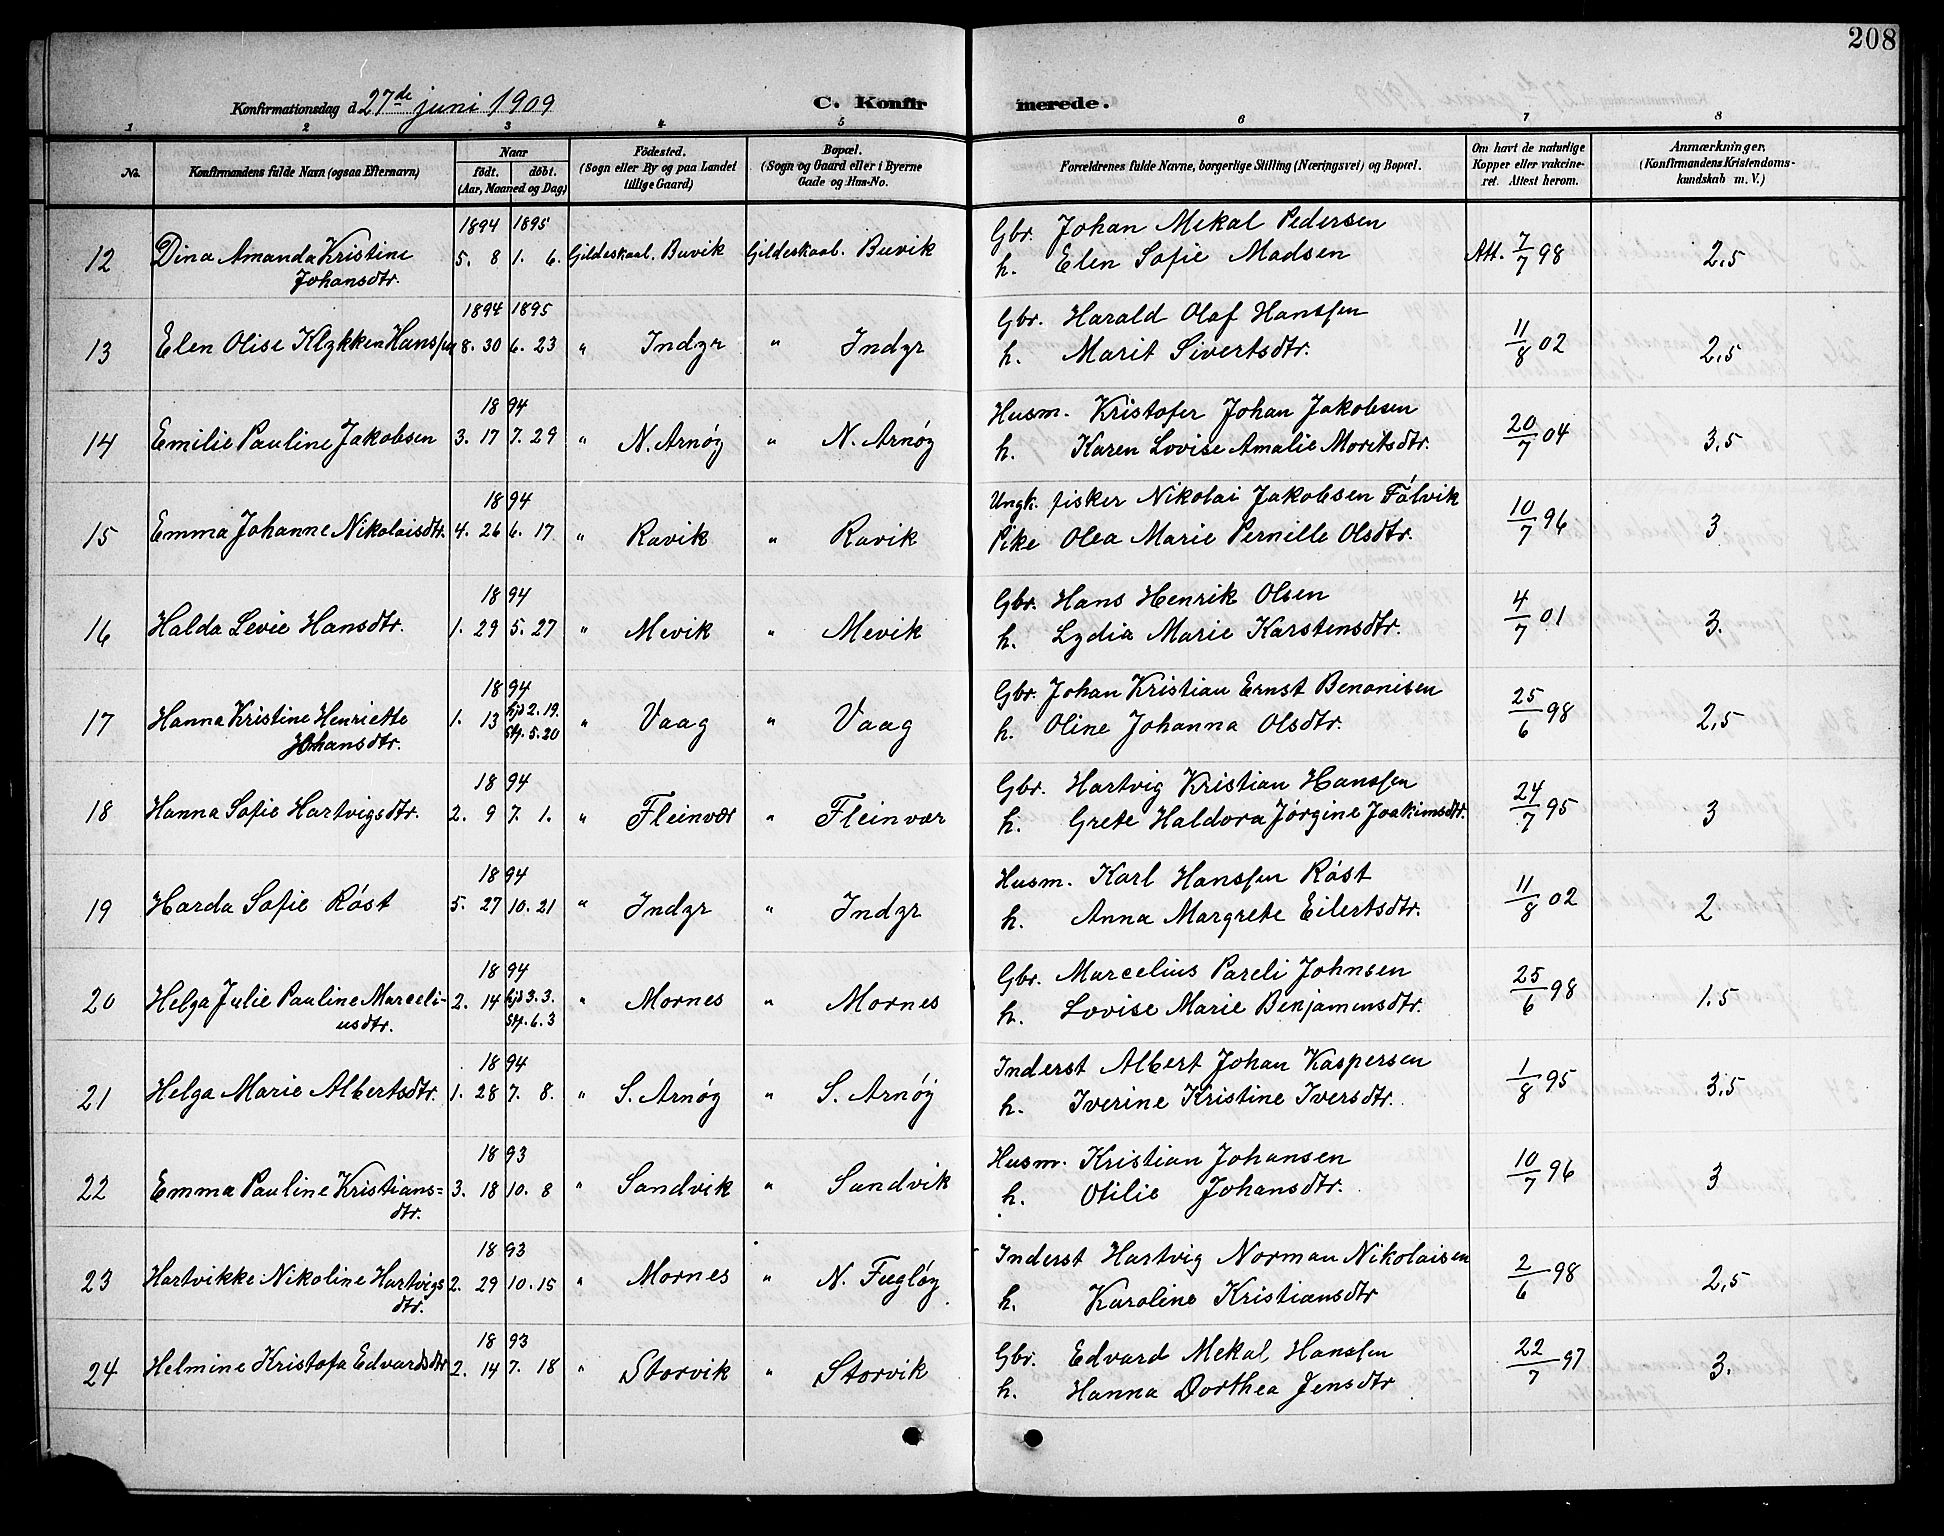 208
Konfirmationsdag d. 27de juni 1909 C. Konfirmerede.
1 2 3 4 5 6 7 8
No. Konfirmandens fulde Navn (ogsaa Efternavn) Naar født. døbt. (Aar, Maaned og Dag) Födested. (Sogn eller By og paa Landet tillige Gaard) Bopæl. (Sogn og Gaard eller i Byerne Gade og Hus-No. Forældrenes fulde Navne, borgerlige Stilling (Næringsvei) og Bopæl. Om havt de naturlige Kopper eller vakcineret. Attest herom. Anmærkninger, (Konfirmandens Kristendomskundskab m. V.)
1894 1895 Gbr. Johan Mekal Pedersen
12 Dina Amanda Kristine 5. 8 1. 6. Gildeskaal. Buvik Gildeskaal. Buvik h. Elen Sofie Madsen Att. 7/7 98 2,5
Johansdtr.
1894 1895 Gbr. Harald Olaf Hanssen
13 Elen Olise Klykken Hanssen 8. 30 6. 23 " Indyr " Indyr h. Marit Sivertsdtr. 11/8 02 2,5
1894 Husm. Kristofer Johan Jakobsen
14 Emilie Pauline Jakobsen 3. 17 7. 29 " N. Arnøy " N. Arnøy h. Karen Lovise Amalie Moritsdtr. 20/7 04 3,5
1894 Ungk. fisker Nikolai Jakobsen Fálvik
15 Emma Johanne Nikolaisdtr. 4. 26 6. 17 " Ravik " Ravik Pike Olea Marie Pernille Olsdtr. 10/7 96 3
1894 Gbr. Hans Henrik Olsen
16 Halda Levie Hansdtr. 1. 29 5. 27 " Mevik " Mevik h. Lydia Marie Karstensdtr. 4/7 01 3.
1894 Gbr. Johan Kristian Ernst Benonisen
17 Hanna Kristine Henriette 1. 13 hjd 2. 19. Stf. 5. 20 " Vaag " Vaag h. Oline Johanna Olsdtr. 25/6 98 2,5
Johansdtr.
1894 Gbr. Hartvig Kristian Hanssen
18 Hanna Sofie Hartvigsdtr. 2. 9 7. 1. " Fleinvær " Fleinvær h. Grete Haldora Jørgine Joakimsdtr. 24/7 95 3
1894 Husm. Karl Hanssen Röst
19 Harda Sofie Röst 5. 27 10. 21 " Indyr " Indyr h. Anna Margrete Eilertsdtr. 11/8 02 2
1894 Gbr. Marcelius Pareli Johnsen
20 Helga Julie Pauline Marceli- 2. 14 hjd 3. 3. Stf. 6. 3 " Mornes " Mornes h. Lovise Marie Benjamensdtr. 25/6 98 1.5
usdtr.
1894 Inderst Albert Johan Kaspersen
21 Helga Marie Albertsdtr. 1. 28 7. 8. " S. Arnøy " S. Arnøy h. Iverine Kristine Iversdtr. 1/8 95 3,5
1893 Husm. Kristian Johansen
22 Emma Pauline Kristians= 3. 18 10. 8 " Sandvik " Sandvik h. Otilie Johansdtr. 10/7 96 3
dtr.
1893 Inderst Hartvig Norman Nikolaisen
23 Hartvikke Nikoline Hartvigs 2. 29 10. 15 " Mornes " N. Fugløy h. Karoline Kristiansdtr 2/6 98 2,5
dtr.
1893 Gbr. Edvard Mekal Hanssen
24 Helmine Kristofa Edvardsdtr 2. 14 7. 18 " Storvik " Storvik h. Hanna Dorthea Jensdtr 22/7 97 3.